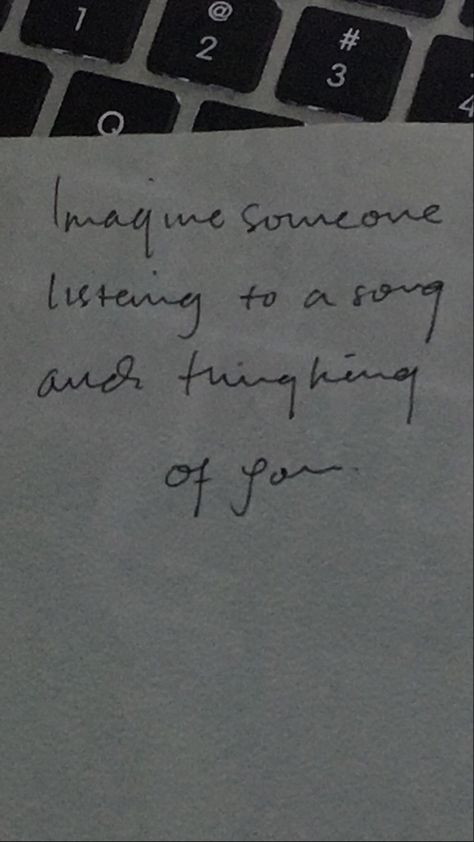 1
@
2
#
3
4
Q
Imagine someone
listening to a song
and thinghing
of you.